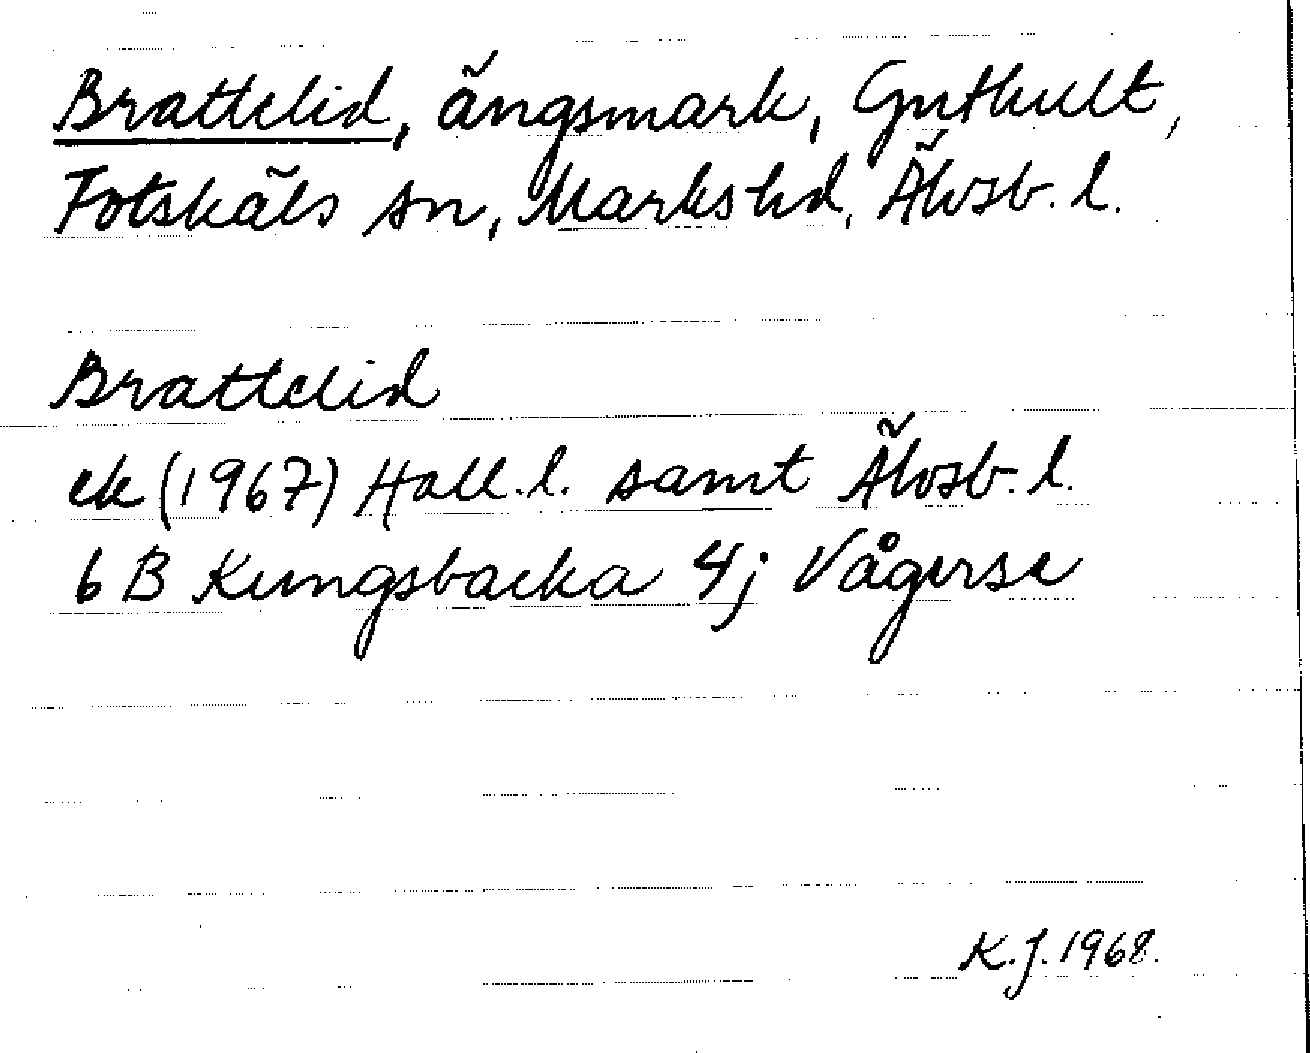 Brattelid, ängsmark, Gutkult,
Fotskäls sn, Marks hd, Älvsb. l.
Brattelid
ek (1967) Hall. l. samt Älvsb. l.
6 B Kungsbacka 4j Vågerse
K.J. 1968.